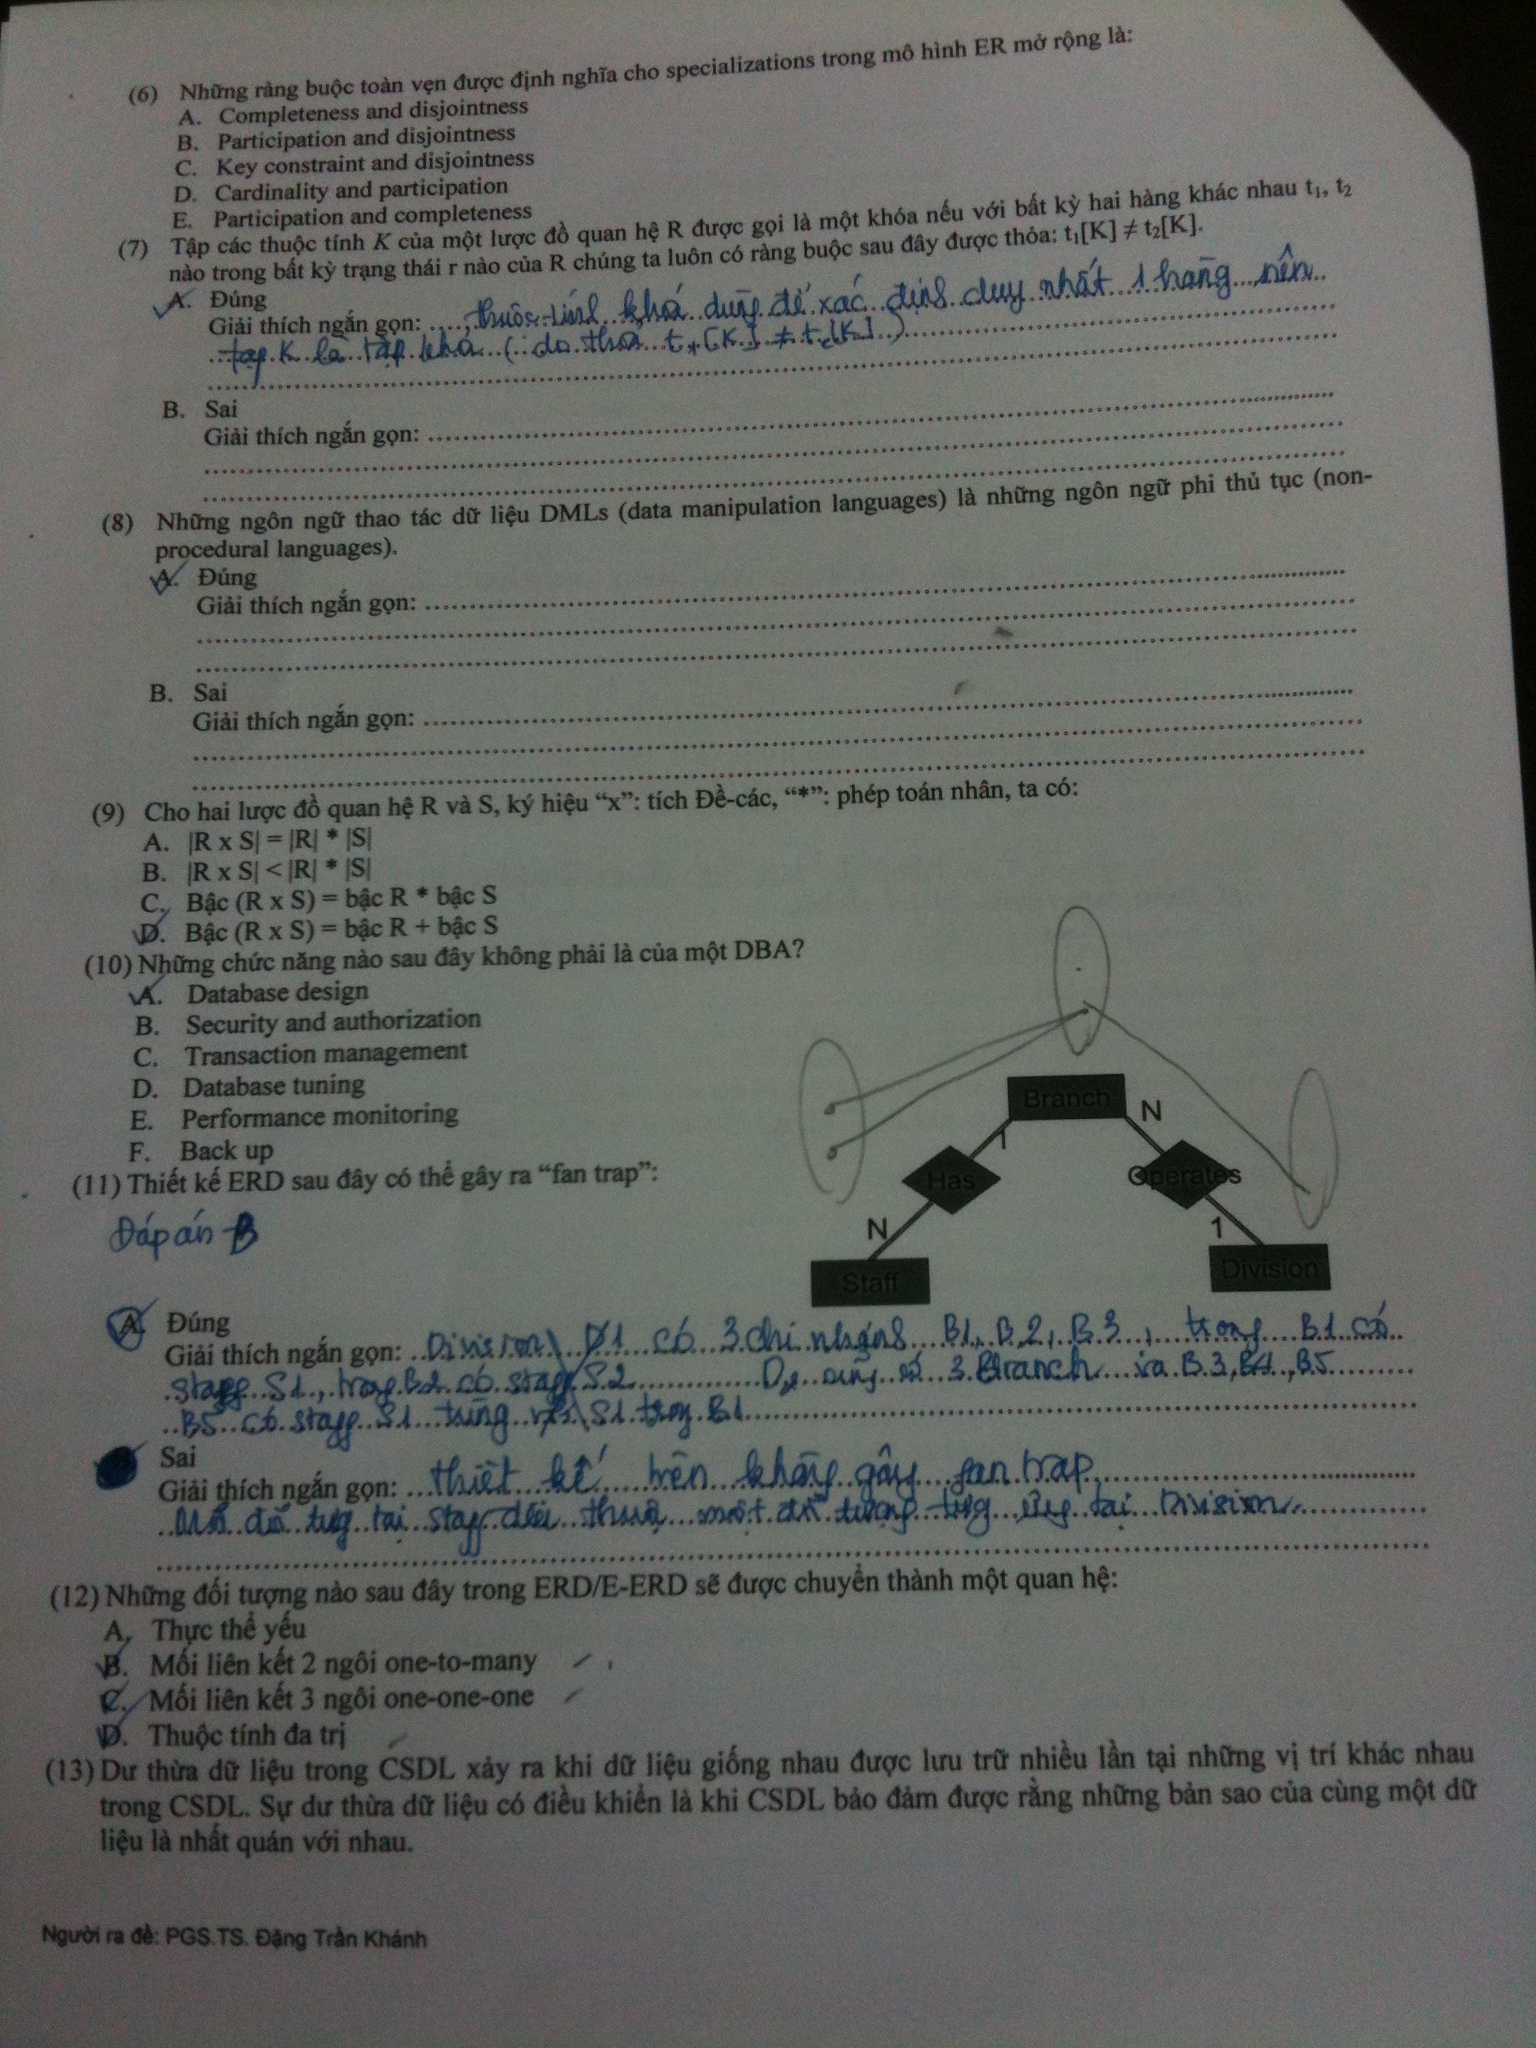 (6) Những ràng buộc toàn vẹn được định nghĩa cho specializations trong mô hình ER mở rộng là:
A. Completeness and disjointness
B. Participation and disjointness
C. Key constraint and disjointness
D. Cardinality and participation
E. Participation and completeness
(7) Tập các thuộc tính K của một lược đồ quan hệ R được gọi là một khóa nếu với bất kỳ hai hàng khác nhau t₁, t₂
nào trong bất kỳ trạng thái r nào của R chúng ta luôn có ràng buộc sau đây được thỏa: t₁[K] ≠ t₂[K].
A. Đúng
Giải thích ngắn gọn: thuộc tính khoá dùng để xác định duy nhất 1 hàng nên
tập K là tập khoá ( do thoả [K] ≠ [K] )
B. Sai
Giải thích ngắn gọn:
(8) Những ngôn ngữ thao tác dữ liệu DMLs (data manipulation languages) là những ngôn ngữ phi thủ tục (non-
procedural languages).
A. Đúng
Giải thích ngắn gọn:
B. Sai
Giải thích ngắn gọn:
(9) Cho hai lược đồ quan hệ R và S, ký hiệu “x”: tích Đề-các, “*”: phép toán nhân, ta có:
A. |R x S| = |R| * |S|
B. |R x S| < |R| * |S|
C. Bậc (R x S) = bậc R * bậc S
D. Bậc (R x S) = bậc R + bậc S
(10) Những chức năng nào sau đây không phải là của một DBA?
A. Database design
B. Security and authorization
C. Transaction management
D. Database tuning
E. Performance monitoring
F. Back up
(11) Thiết kế ERD sau đây có thể gây ra “fan trap”:
Branch
1
N
Has
Operates
N
1
Staff
Division
Đáp án B
A. Đúng
Giải thích ngắn gọn: Division D1 có 3 chi nhánh B1, B2, B3, trong B1 có
staff S1, trong B2 có staff S2 D2 cũng có 3 Branch B3, B4, B5
B5 có staff S1 trùng với S1 trong B1
Sai
Giải thích ngắn gọn: thiết kế trên không gây fan trap
đối tượng tại staff đều thuộc một đối tượng tương ứng tại Division
(12) Những đối tượng nào sau đây trong ERD/E-ERD sẽ được chuyển thành một quan hệ:
A. Thực thể yếu
B. Mối liên kết 2 ngôi one-to-many
C. Mối liên kết 3 ngôi one-one-one
D. Thuộc tính đa trị
(13) Dư thừa dữ liệu trong CSDL xảy ra khi dữ liệu giống nhau được lưu trữ nhiều lần tại những vị trí khác nhau
trong CSDL. Sự dư thừa dữ liệu có điều khiển là khi CSDL bảo đảm được rằng những bản sao của cùng một dữ
liệu là nhất quán với nhau.
Người ra đề: PGS.TS. Đặng Trần Khánh